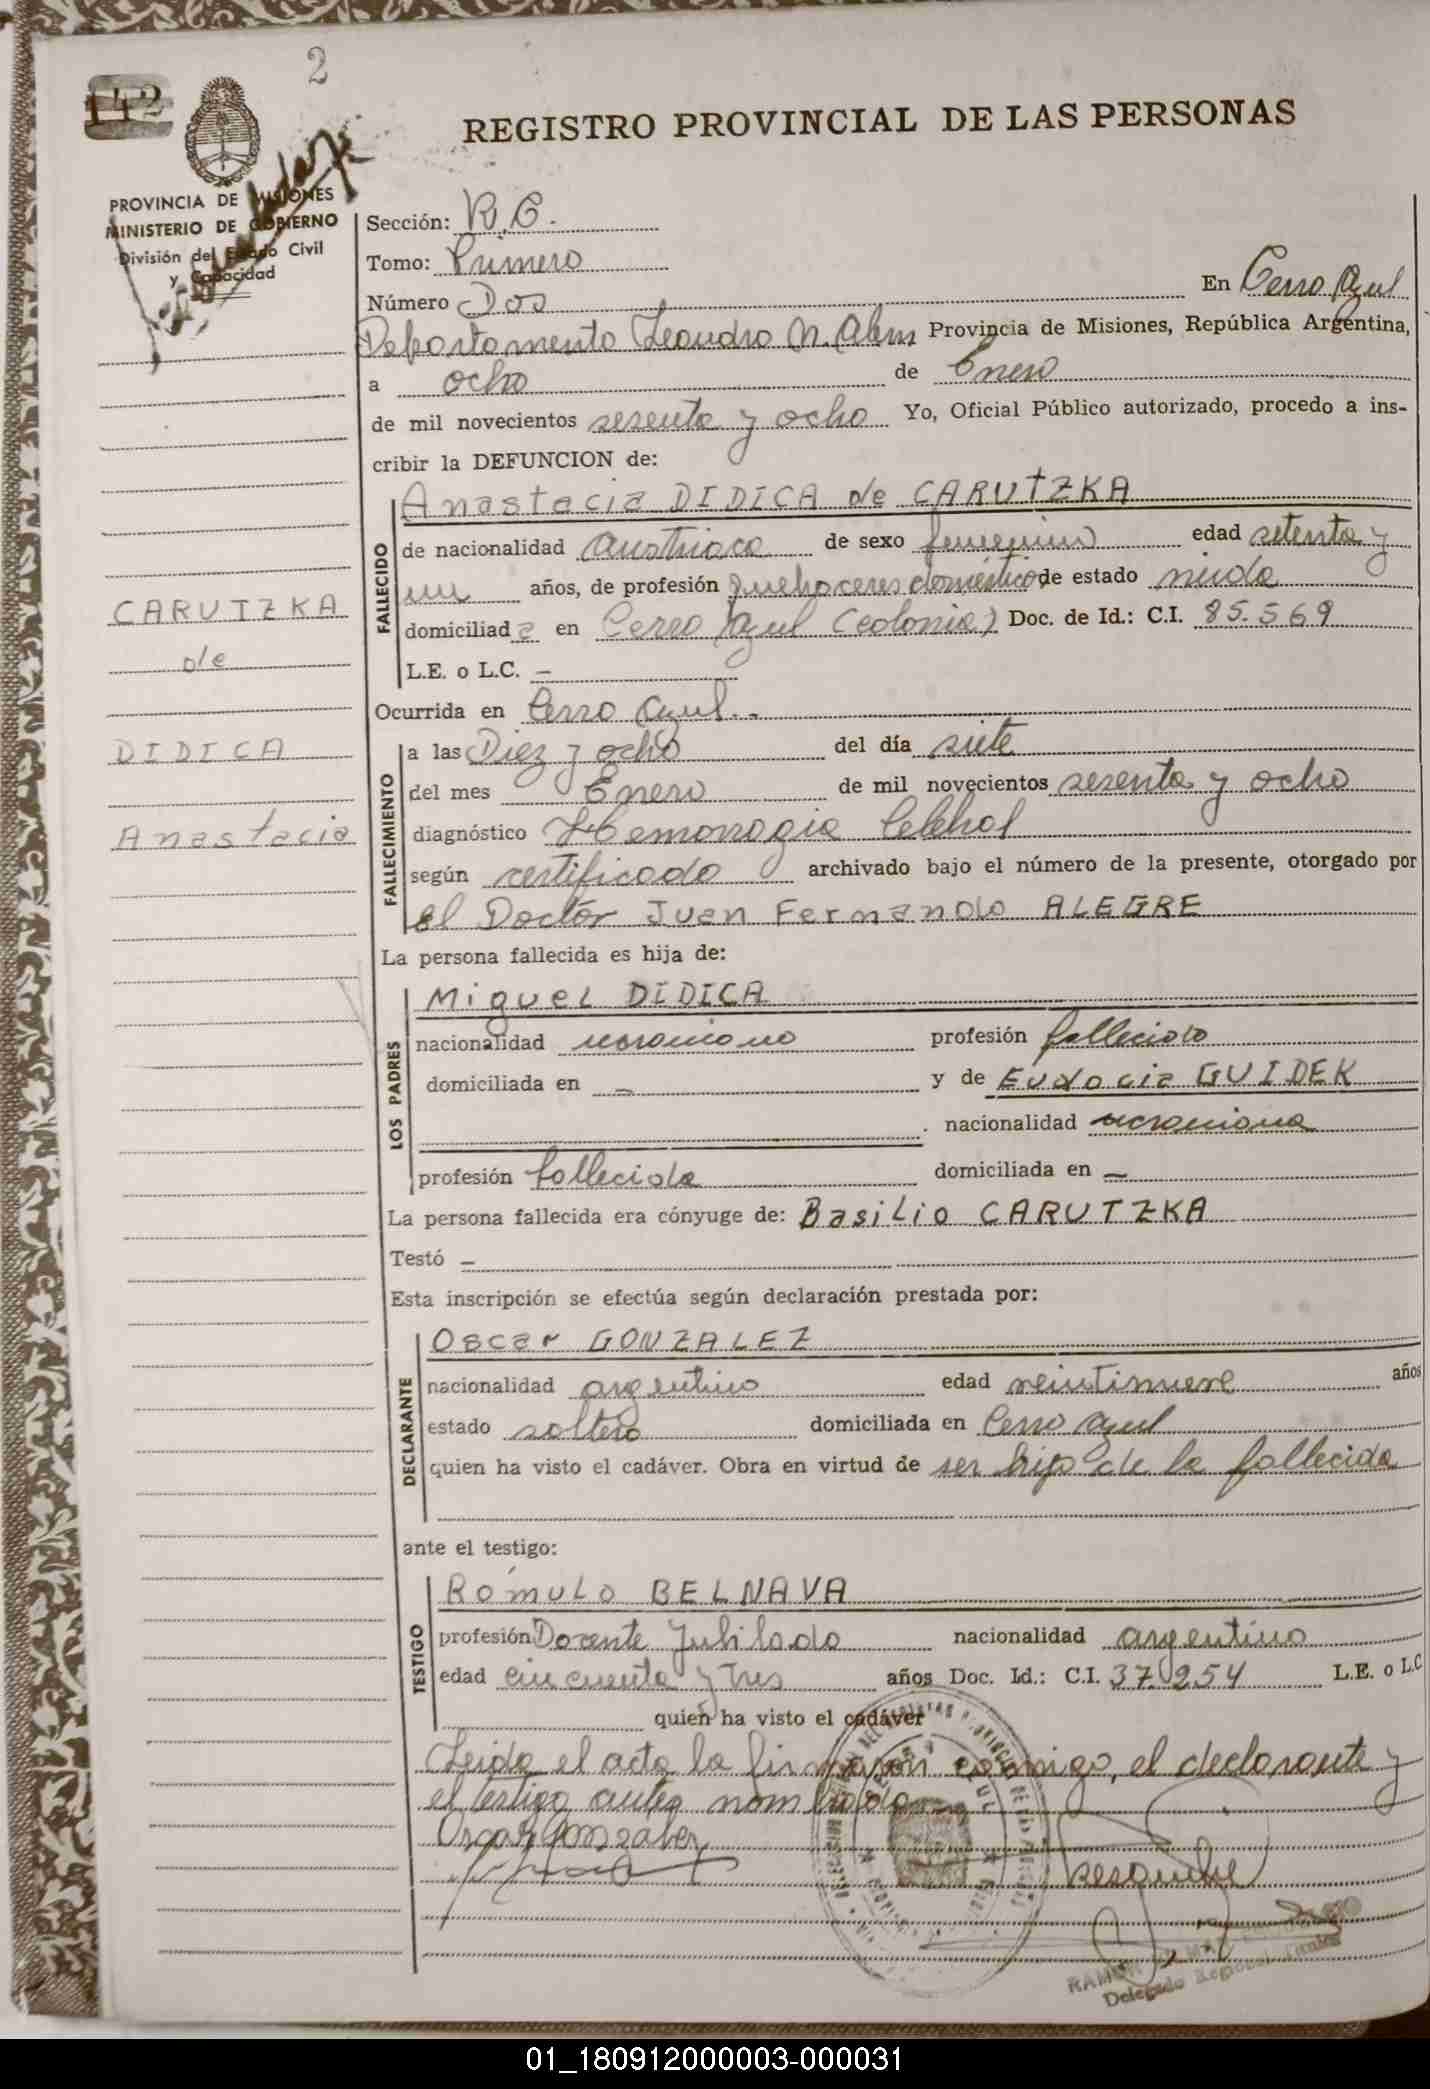 2
142
REGISTRO PROVINCIAL DE LAS PERSONAS
PROVINCIA DE MISIONES
MINISTERIO DE GOBIERNO
División del Estado Civil
y Capacidad
Sección: R.C.
Tomo: Primero
Número Dos En Cerro Azul
Departamento Leandro N. Alem Provincia de Misiones, República Argentina,
a ocho de Enero
de mil novecientos sesenta y ocho Yo, Oficial Público autorizado, procedo a ins-
cribir la DEFUNCION de:
CARUTZKA
de
DIDICA
Anastacia
FALLECIDO
Anastacia DIDICA de CARUTZKA
de nacionalidad Austriaca de sexo femenino edad setenta y
un años, de profesión quehaceres domésticos de estado viuda
domiciliada en Cerro Azul (colonia) Doc. de Id.: C.I. 85.569
L.E. o L.C. —
Ocurrida en Cerro Azul.-
FALLECIMIENTO
a las Diez y ocho del día siete
del mes Enero de mil novecientos sesenta y ocho
diagnóstico Hemorragia
según certificado archivado bajo el número de la presente, otorgado por
el Doctor Juan Fernando ALEGRE
La persona fallecida es hija de:
LOS PADRES
Miguel DIDICA
nacionalidad ucraniano profesión fallecido
domiciliada en — y de Eudocia GUIDEK
nacionalidad ucraniana
profesión fallecida domiciliada en —
La persona fallecida era cónyuge de: Basilio CARUTZKA
Testó —
Esta inscripción se efectúa según declaración prestada por:
DECLARANTE
Oscar GONZALEZ
nacionalidad argentino edad veintinueve años
estado soltero domiciliada en Cerro Azul
quien ha visto el cadáver. Obra en virtud de ser hijo de la fallecida
ante el testigo:
TESTIGO
Rómulo BELNAVA
profesión Docente Jubilado nacionalidad argentino
edad cincuenta y tres años Doc. Id.: C.I. 37.254 L.E. o L.C
quien ha visto el cadáver
Leida el acta la firmaron conmigo, el declarante y
el testigo antes nombrado
Oscar Gonzalez
Delegado
01_180912000003-000031